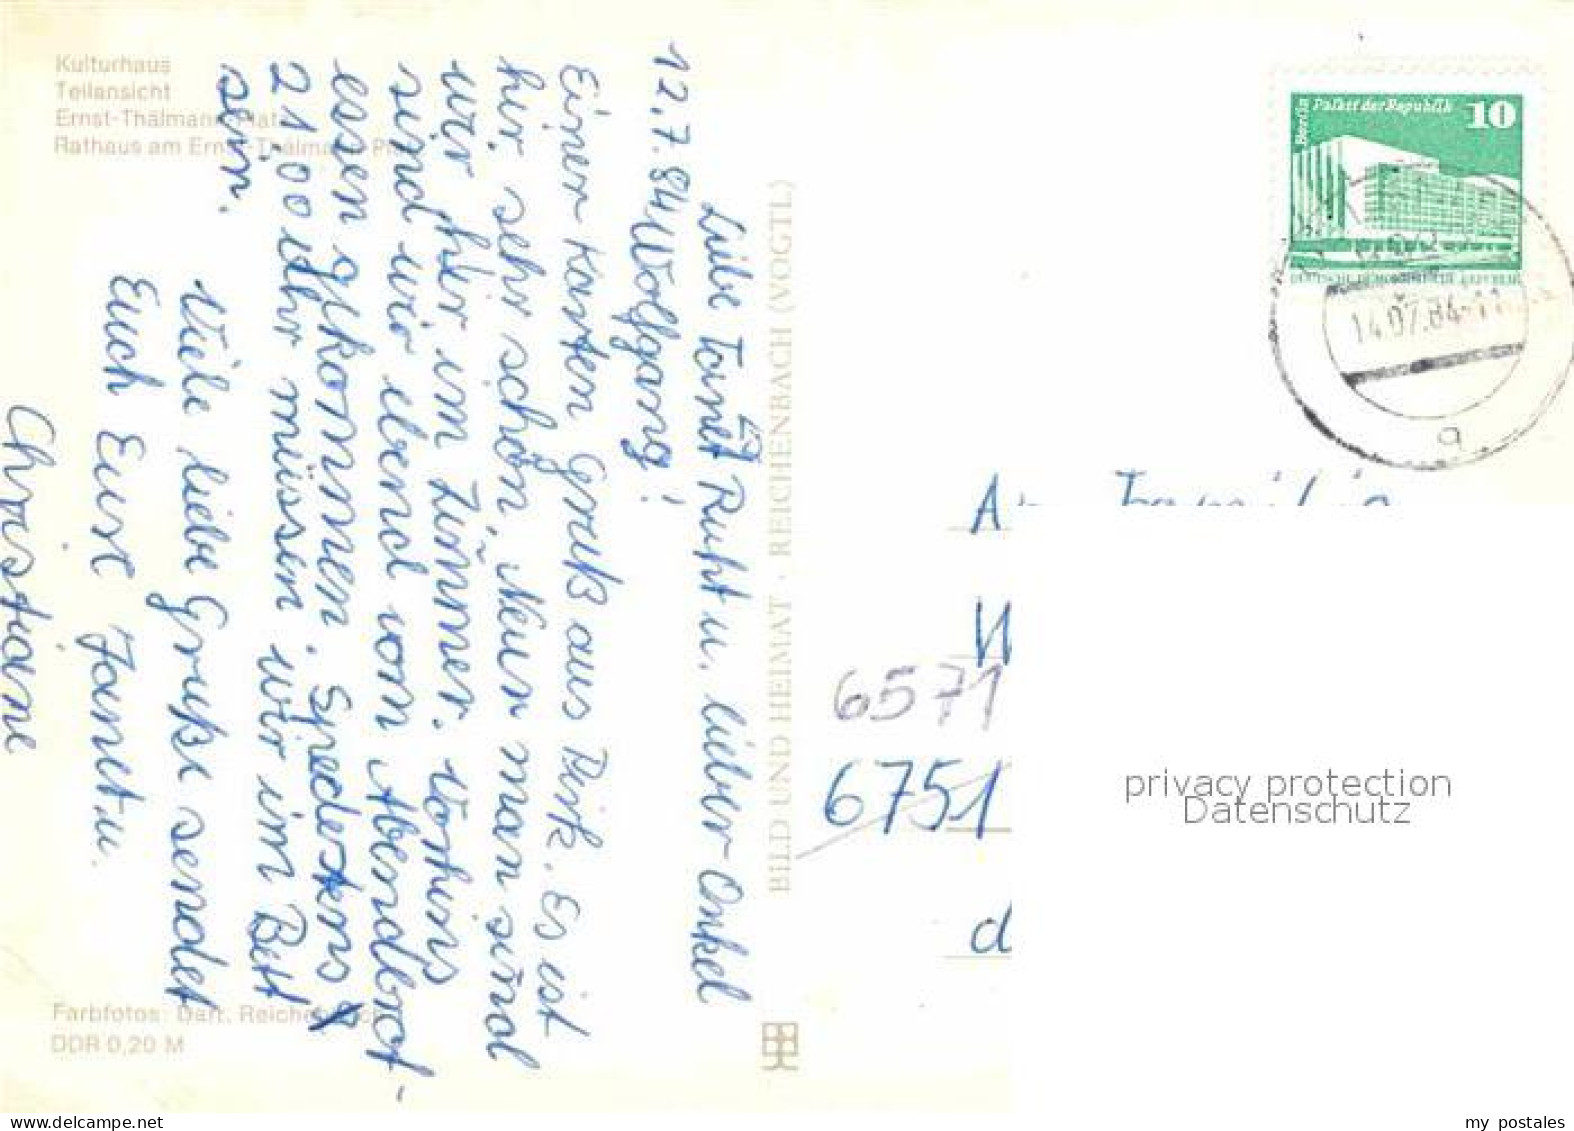 Kulturhaus
Teilansicht
Ernst-Thälmann-Platz
Rathaus am Ernst-Thälmann-Pl
12.7.84
Liebe Tante Ruht u. lieber Onkel
Wolfgang!
Einer Karten Gruß aus Pirk. Es ist
hir sehr schön, Neun man sind
wir hir im Zimmer. Vorhins
sind wir ebend vom Abendbrot-
essen gekommen. Spedestens
21.00 Uhr müssen wir im Bett
sein.
Viele liebe Gruße sendet
Euch Eure Janet u.
Christiane
Farbfotos: Darr, Reichenbach
DDR 0,20 M
BILD UND HEIMAT · REICHENBACH (VOGTL)
Berlin Palast der Republik 10
DEUTSCHE DEMOKRATISCHE REPUBLIK
14.07.84-11
a
An Familie
W
6571
6751
d
privacy protection
Datenschutz
my postales